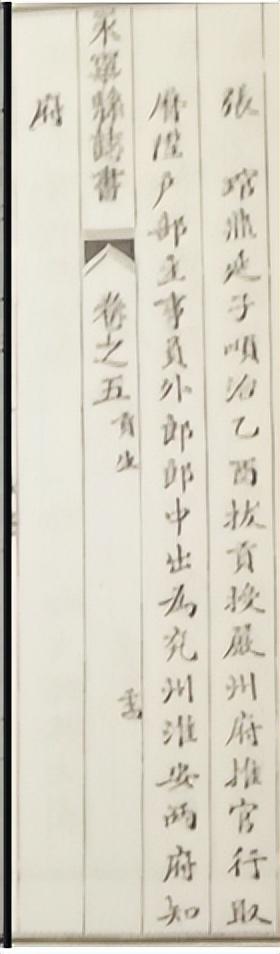 張　琯鼎延子順治乙酉拔貢授嚴州府推官行取
歷陞戶部主事員外郎郎中出為兗州淮安兩府知
永寧縣誌書　卷之五　貢生
府